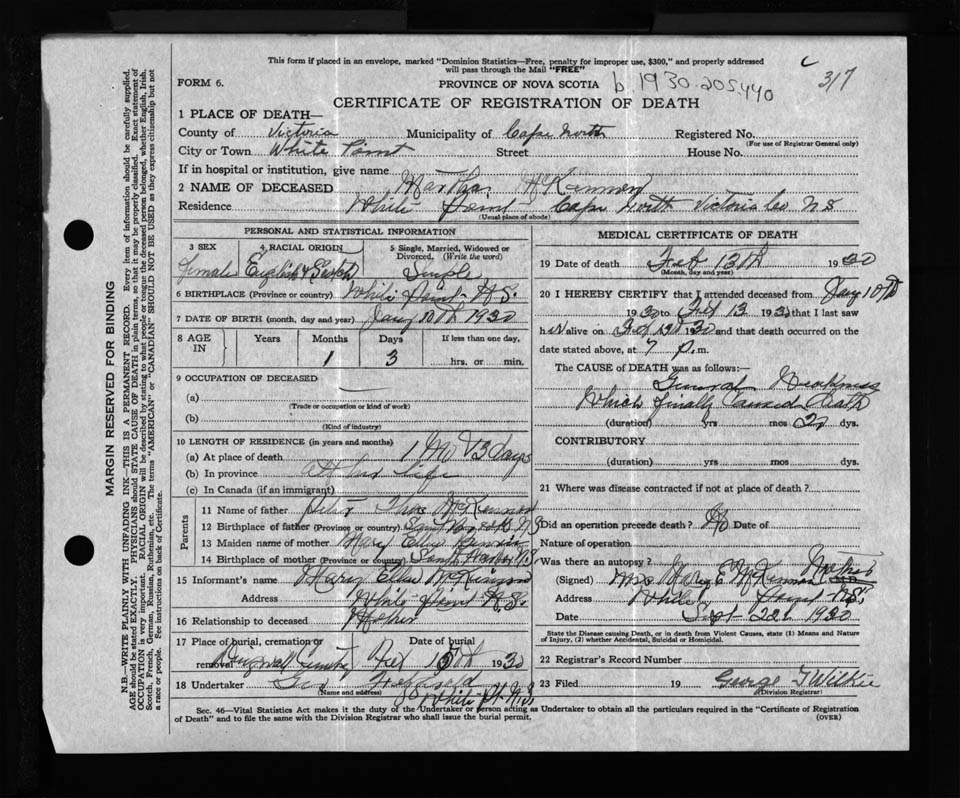 This form if placed in an envelope, marked "Dominion Statistics—Free, penalty for improper use, $300," and properly addressed
will pass through the Mail "FREE"
317
FORM 6.
PROVINCE OF NOVA SCOTIA
b 1930.205440
CERTIFICATE OF REGISTRATION OF DEATH
1 PLACE OF DEATH—
County of Victoria Municipality of Cape North Registered No.
(For use of Registrar General only)
City or Town White Point Street House No.
If in hospital or institution, give name
2 NAME OF DECEASED Martha McKinnon
Residence White Point Cape North Victoria Co N S
(Usual place of abode)
PERSONAL AND STATISTICAL INFORMATION
3 SEX 4 RACIAL ORIGIN 5 Single, Married, Widowed or
Divorced. (Write the word)
female English & Scotch Single
6 BIRTHPLACE (Province or country) White Point N.S.
7 DATE OF BIRTH (month, day and year) Jany 10th 1930
8 AGE IN Years Months Days If less than one day,
1 3 hrs. or min.
9 OCCUPATION OF DECEASED
(a)
(Trade or occupation or kind of work)
(b)
(Kind of industry)
10 LENGTH OF RESIDENCE (in years and months)
(a) At place of death 1 Mo & 3 days
(b) In province All her life
(c) In Canada (if an immigrant)
Parents
11 Name of father Peter McKinnon
12 Birthplace of father (Province or country) N S
13 Maiden name of mother Mary Ellen
14 Birthplace of mother (Province or country) N.S.
15 Informant's name Mary Ellen McKinnon
Address White Point N.S.
16 Relationship to deceased Mother
17 Place of burial, cremation or removal Date of burial
Dingwall Feb 15th 1930
18 Undertaker Geo
(Name and address) White Pt. N.S
MEDICAL CERTIFICATE OF DEATH
19 Date of death Feb 13th 1930
(Month, day and year)
20 I HEREBY CERTIFY that I attended deceased from Jany 10th
1930 to Feb 13 1930 that I last saw
h er alive on Feb 13th 1930 and that death occurred on the
date stated above, at 7 p.m.
The CAUSE OF DEATH was as follows:
General Weakness
which finally Caused death
(duration) yrs mos dys.
CONTRIBUTORY
(duration) yrs mos dys.
21 Where was disease contracted if not at place of death?
Did an operation precede death? No Date of
Nature of operation
Was there an autopsy?
(Signed) Mrs Mary E McKinnon Mother M.D.
Address White Point N.S.
Date Sept 22 1930
State the Disease causing Death, or in death from Violent Causes, state (1) Means and Nature
of Injury, (2) whether Accidental, Suicidal or Homicidal.
22 Registrar's Record Number
23 Filed 19 George T Wilkie
(Division Registrar)
Sec. 46—Vital Statistics Act makes it the duty of the Undertaker or person acting as Undertaker to obtain all the particulars required in the "Certificate of Registration
of Death" and to file the same with the Division Registrar who shall issue the burial permit.
(OVER)
MARGIN RESERVED FOR BINDING
N.B.—WRITE PLAINLY WITH UNFADING INK—THIS IS A PERMANENT RECORD. Every item of information should be carefully supplied.
AGE should be stated EXACTLY. PHYSICIANS should STATE CAUSE OF DEATH in plain terms, so that it may be properly classified. Exact statement of
OCCUPATION is very important. RACIAL ORIGIN will be described by stating to what people or tongue the deceased person belonged, whether English, Irish,
Scotch, French, German, Russian, Ruthenian, etc. The terms "AMERICAN" or "CANADIAN" SHOULD NOT BE USED as they express citizenship but not
a race or people. See instructions on back of Certificate.